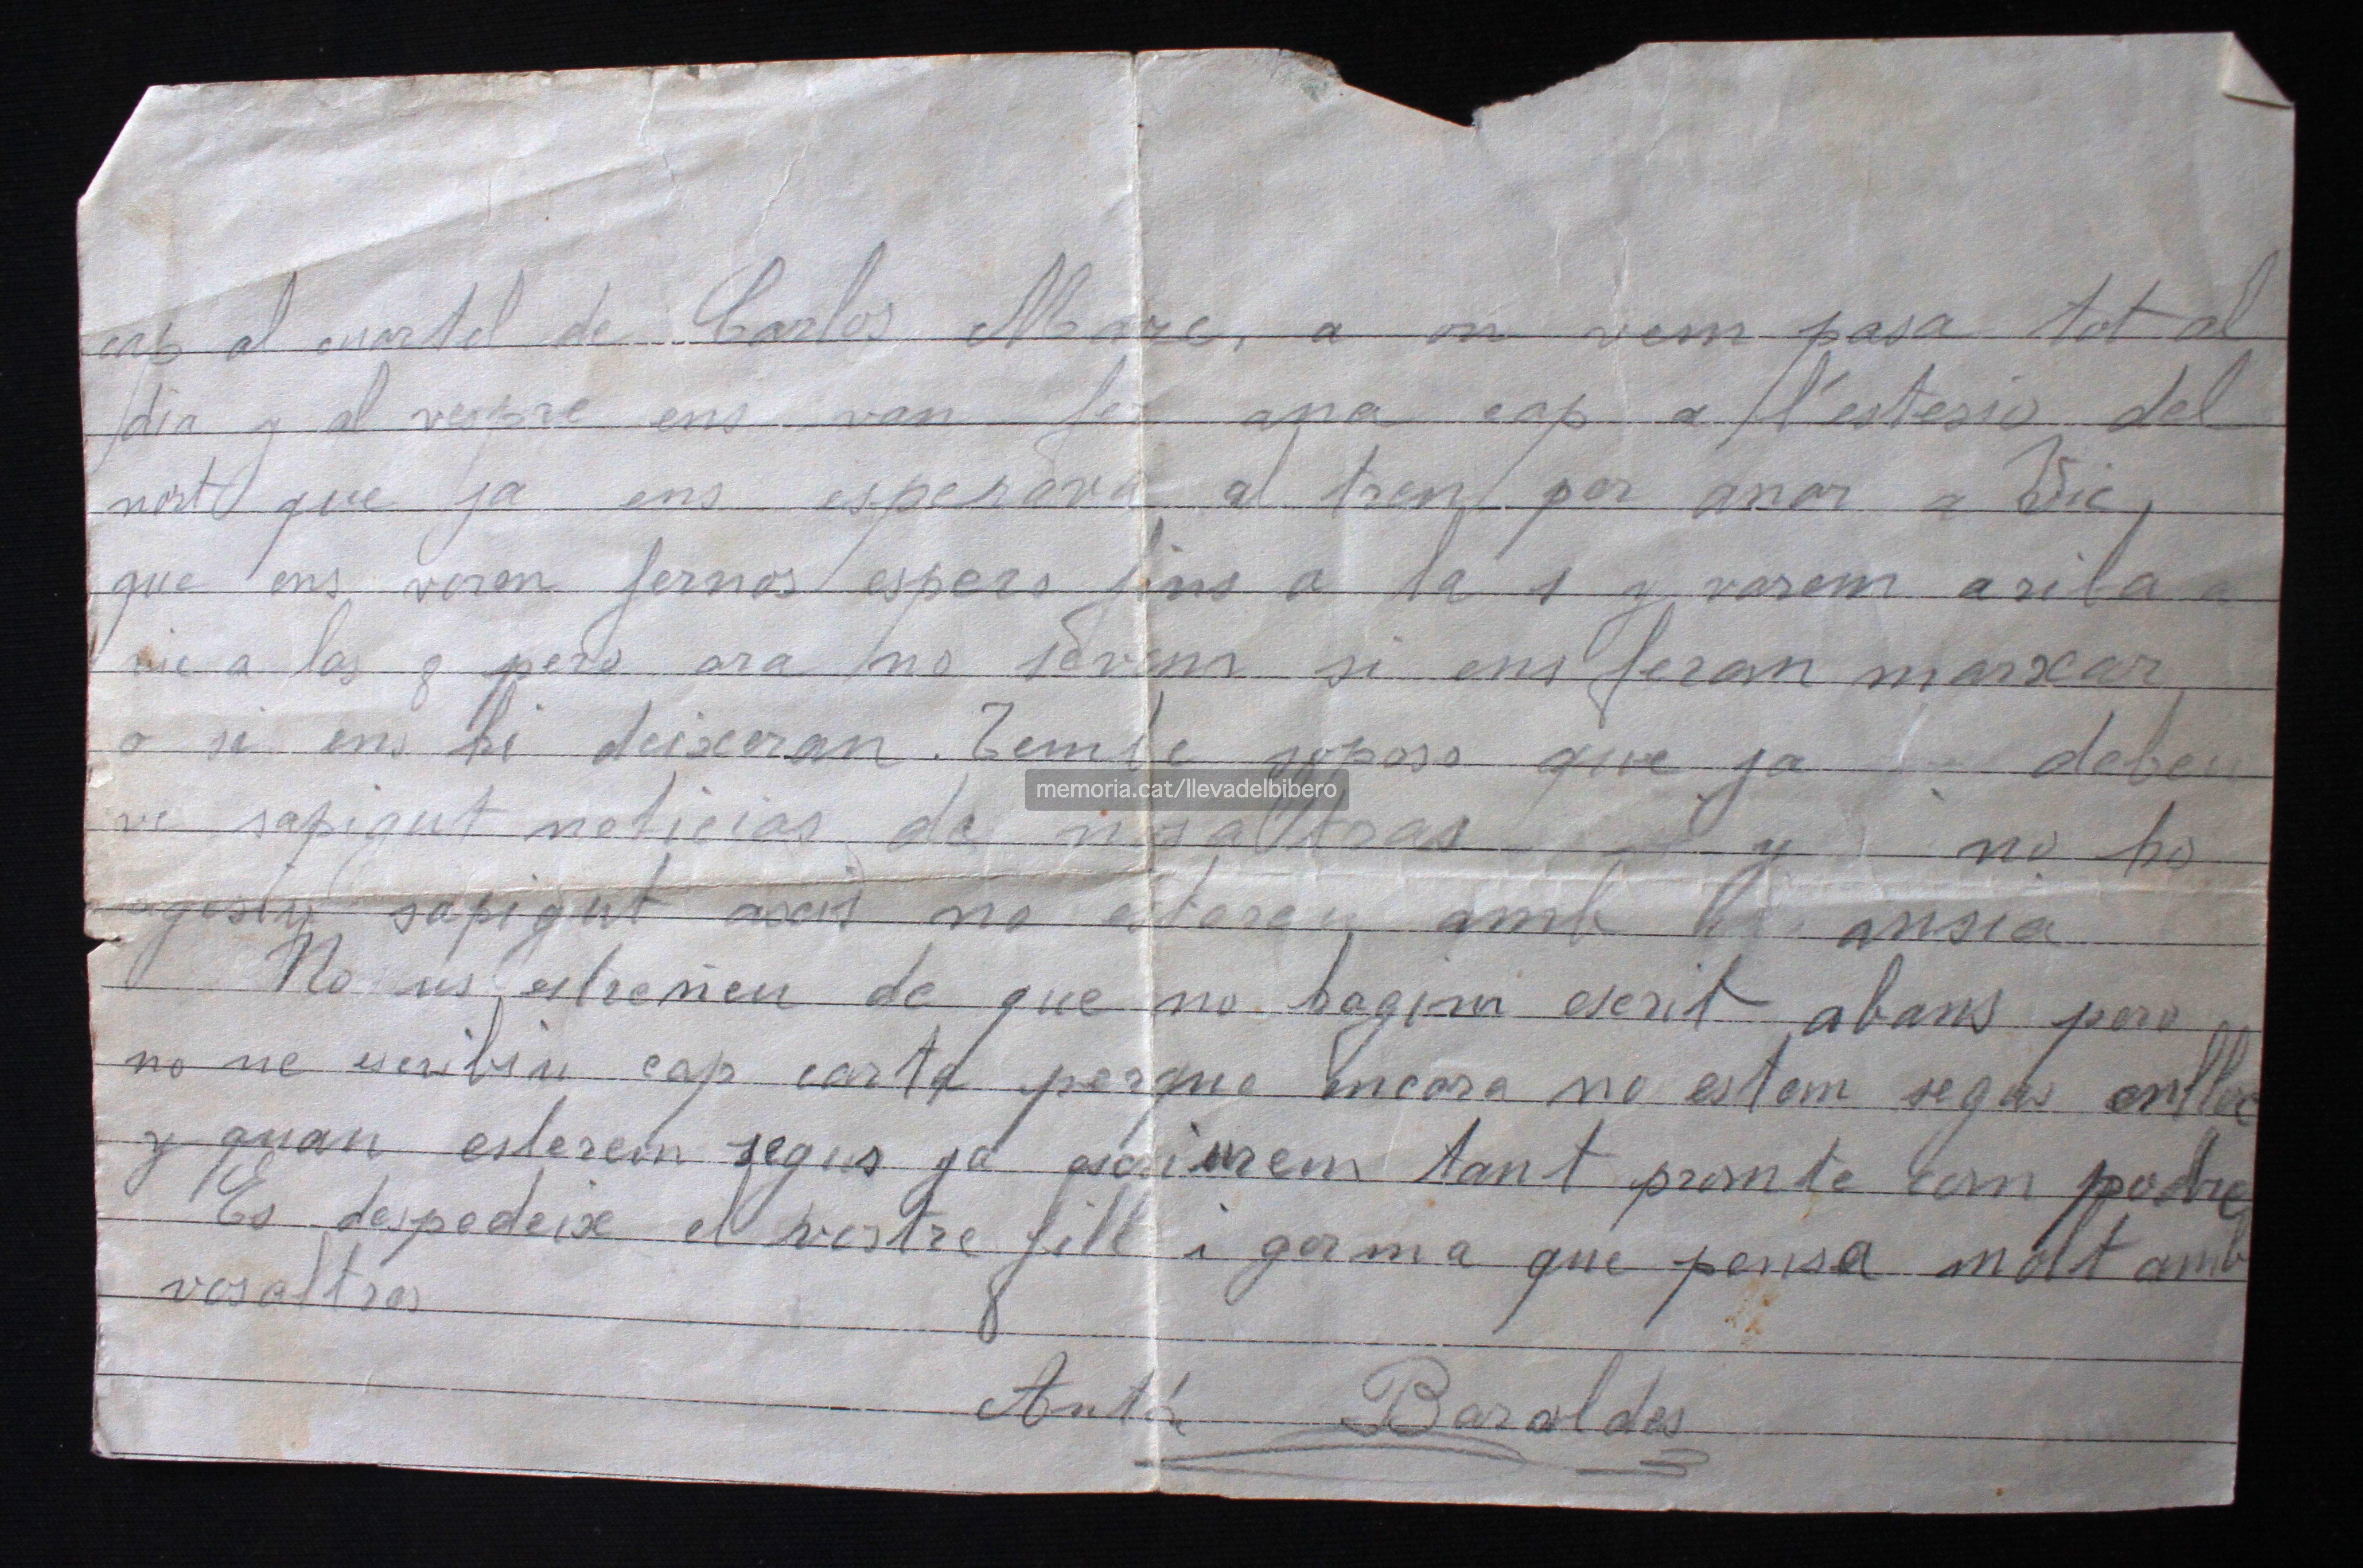 cap al cuartel de Carlos Marx, a on vem pasa tot al
dia y al vespre ens van fer ana cap a l'estesio del
nort que ja ens esperava al tren per anar a Vic,
que ens varen fernos espera fins a la 1 y varem ariba a
vic a las 9 pero ara no savem si ens feran marxar
o si ens hi deixeran. Tembe soposo que ja debeu
ve sapigut noticias de nosaltras y no ho
agesiu sapigut axis no estareu amb ansia
No us estreñeu de que no hagim escrit abans pero
no ne escribiu cap carta perque encara no estem segus enlloc
y quan esterem segus ja escriurem tant promte com podre
Es despedeix el vostre fill i germa que pensa molt amb
vosaltres
Anton Baraldes
memoria.cat/llevadelbibero